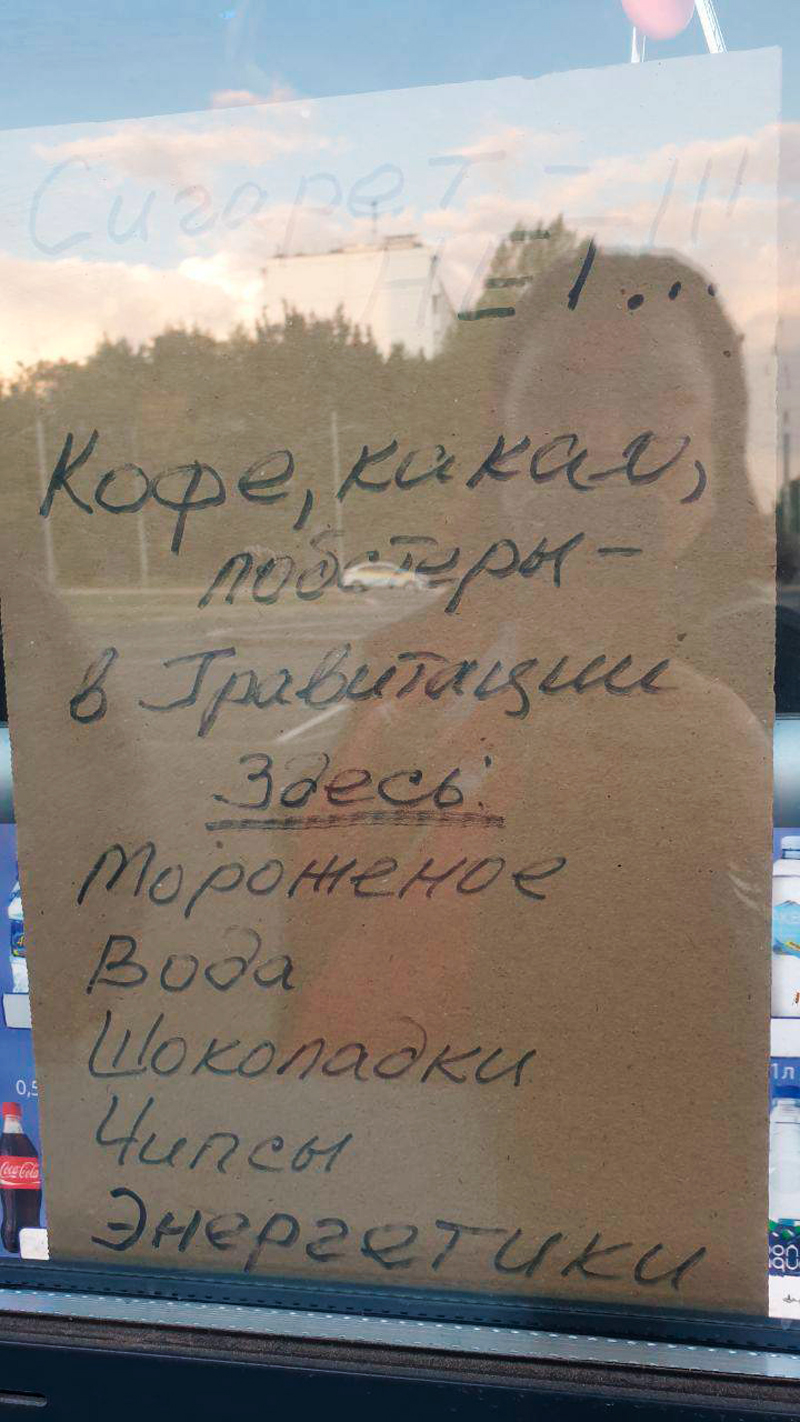 Сигарет - !!!
НЕТ...
Кофе, какао,
лобстеры -
в Гравитации
Здесь:
Мороженое
Вода
Шоколадки
Чипсы
Энергетики
0,5
1л
Coca-Cola